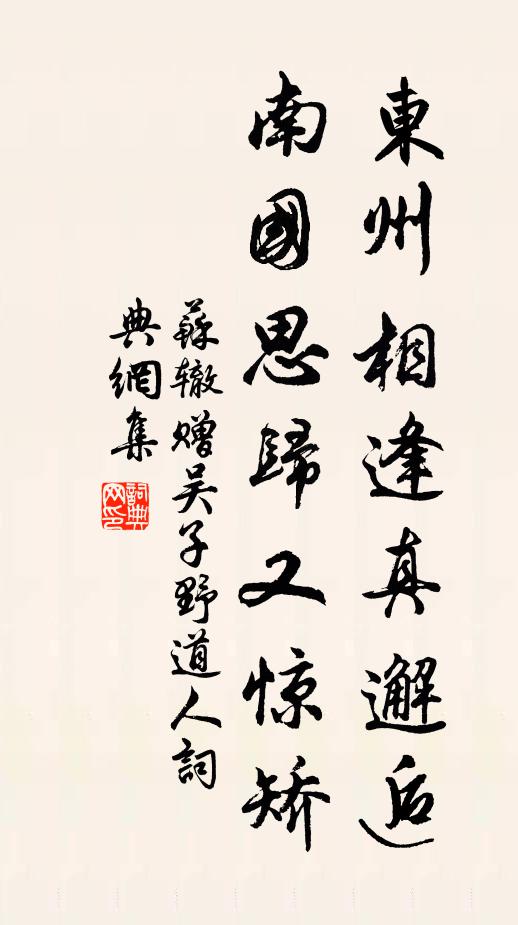 東州相逢真邂逅
南國思歸又惊矫
蘇辙赠吴子野道人詞
典網集
詞典网印